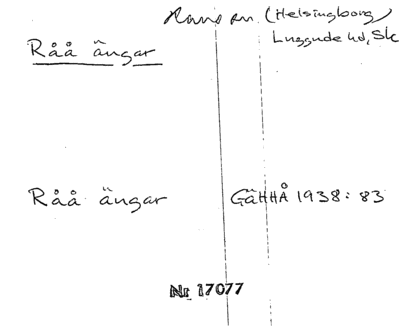 Raus sn. (Helsingborg)
Luggude hd, Sk
Råå ängar
Råå ängar GäHHÅ 1938: 83
Nr 17077